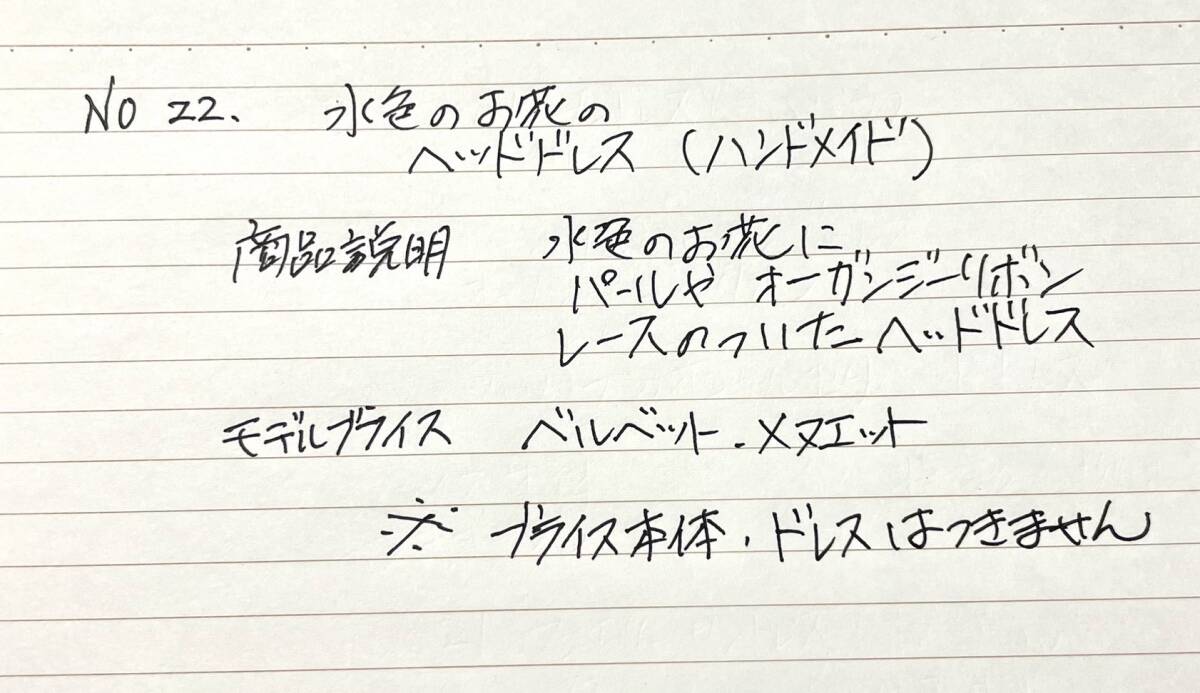 NO 22. 水色のお花の
ヘッドドレス (ハンドメイド)
商品説明 水色のお花に
パールや オーガンジーリボン
レースのついた ヘッドドレス
モデルブライス ベルベット・メヌエット
※ ブライス本体・ドレスはつきません